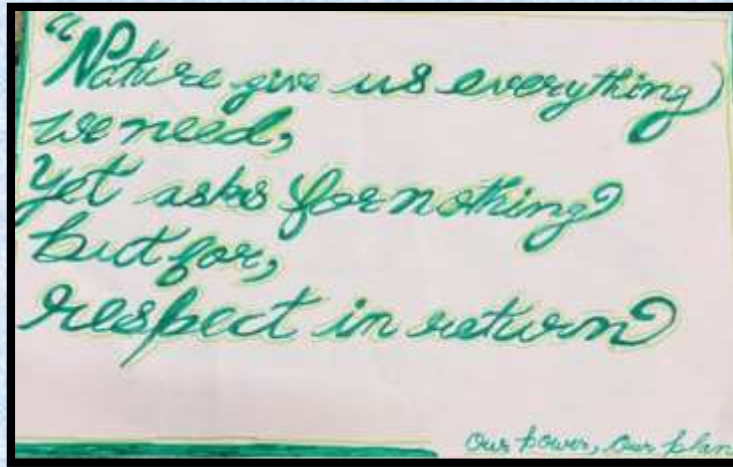 “Nature give us everything
we need,
Yet asks for nothing
but for,
respect in return
Our power, Our plan